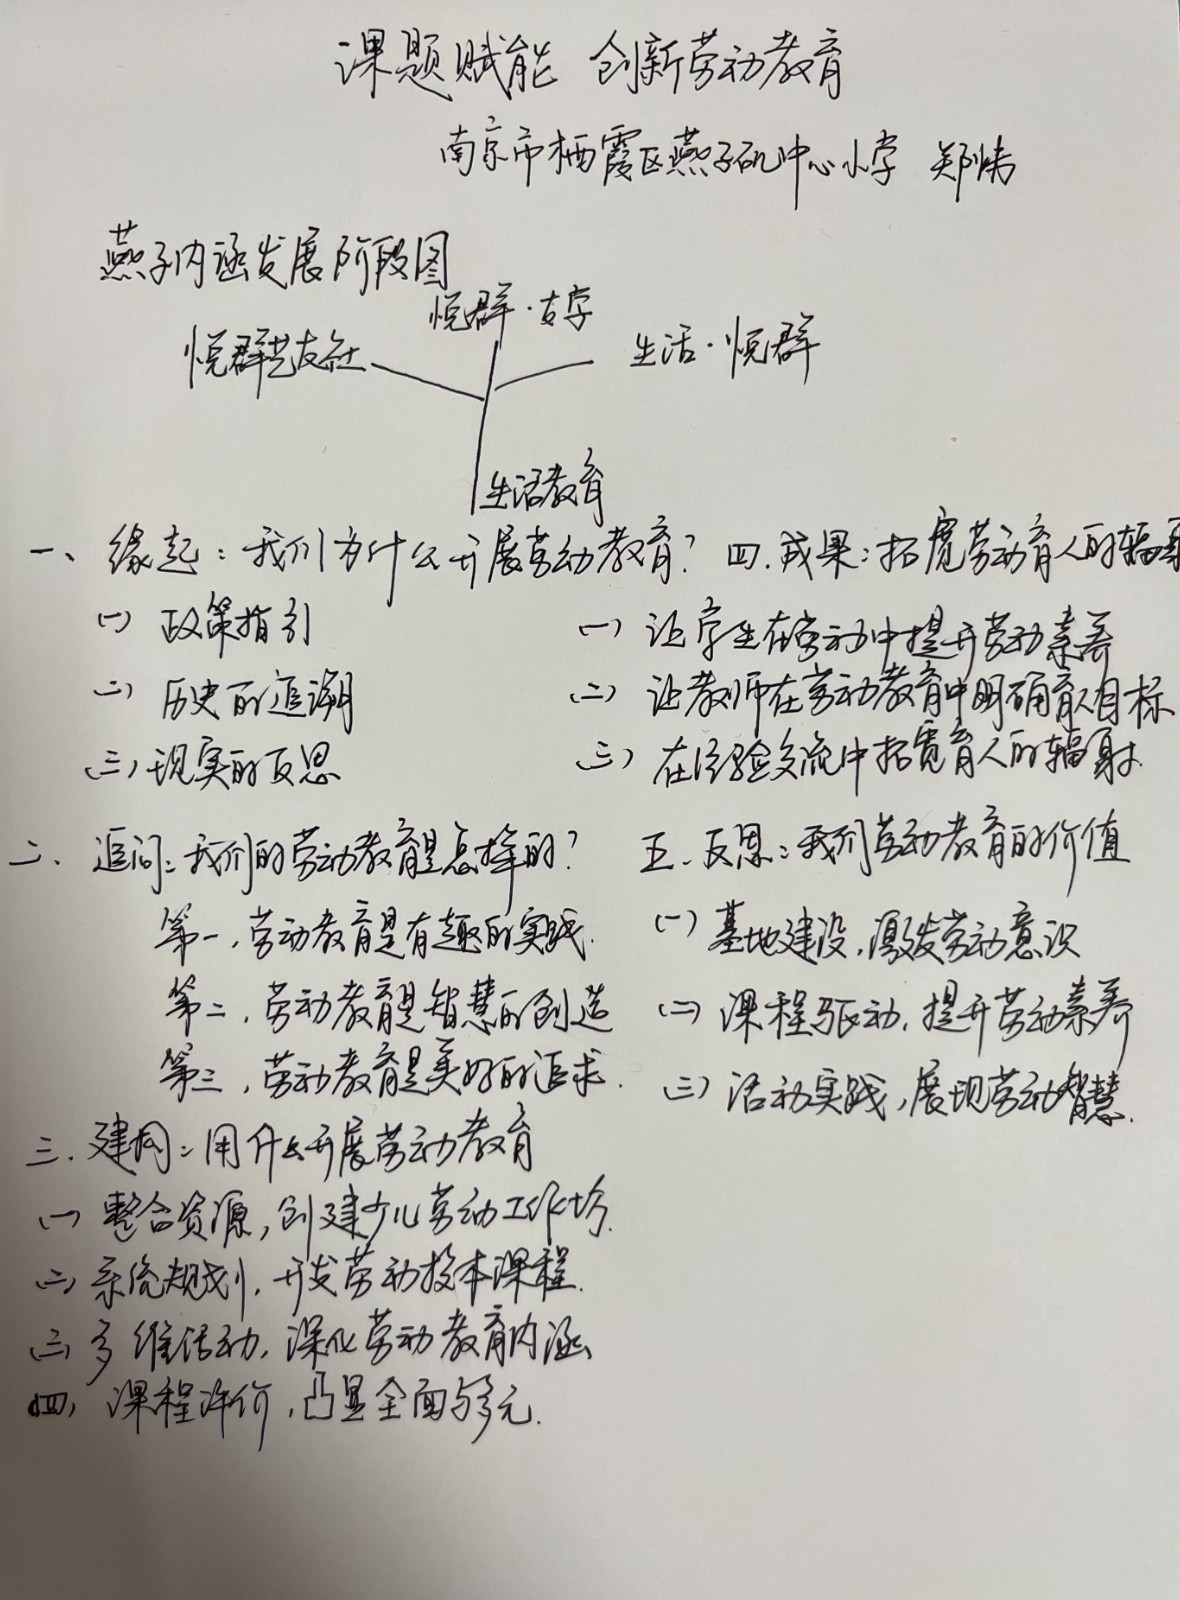 课题赋能 创新劳动教育
南京市栖霞区燕子矶中心小学 郑炜
燕子内涵发展阶段图
悦群·友学
悦群艺友社
生活·悦群
生活教育
一、缘起：我们为什么开展劳动教育？
(一) 政策指引
(二) 历史的追溯
(三) 现实的反思
二、追问：我们的劳动教育是怎样的？
第一，劳动教育是有趣的实践.
第二，劳动教育是智慧的创造
第三，劳动教育是美好的追求.
三.建构：用什么开展劳动教育
(一) 整合资源，创建少儿劳动工作坊.
(二) 系统规划，开发劳动校本课程.
(三) 多维活动，深化劳动教育内涵
(四) 课程评价，凸显全面与多元.
四.成果：拓宽劳动育人的辐射
(一) 让学生在劳动中提升劳动素养
(二) 让教师在劳动教育中明确育人目标
(三) 在经验交流中拓宽育人的辐射.
五.反思：我们劳动教育的价值
(一) 基地建设，激发劳动意识
(二) 课程驱动，提升劳动素养
(三) 活动实践，展现劳动智慧.